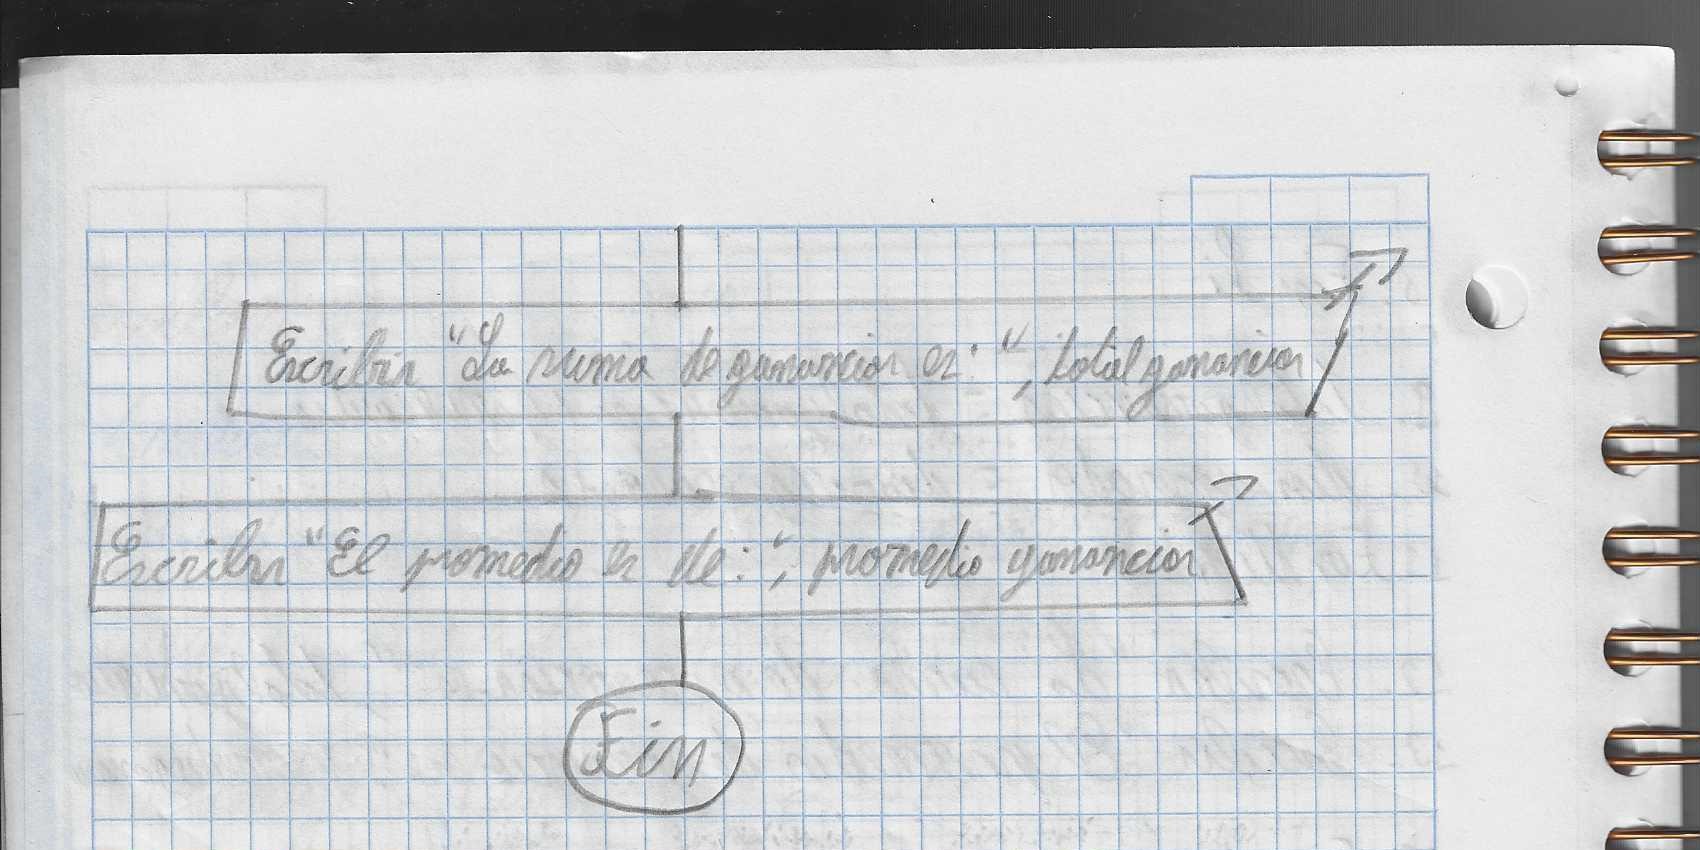 Escribir "La suma de ganancias es: ", total ganancias
Escribir "El promedio es de: ", promedio ganancias
Fin